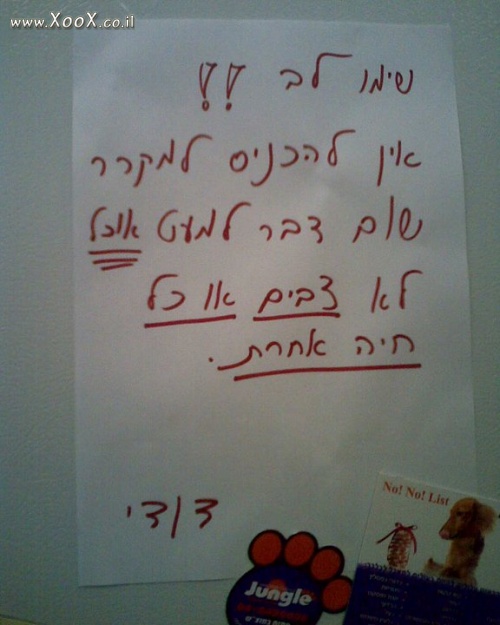 www.XooX.co.il
שימו לב !!
אין להכניס למקרר
שום דבר למעט אוכל
לא צבים או כל
חיה אחרת.
דודי
No! No! List
Jungle